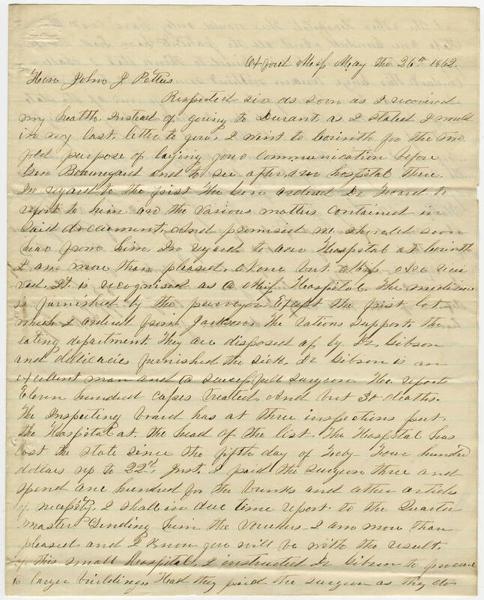 Oxford Miss May the 26th 1862.
Hon John J Pettus
Respected sir as soon as I received
my health instead of going to Durant as I stated I would
in my last letter to you, I went to Corinth for the
fold purpose of laying your communication before
Gen Beauregard and to see after our hospital there.
In regard to the first the Gen ordered Dr to
report to him on the various matters contained in
said document, and promised me should soon
hear from him In regard to our Hospital at Corinth
I am more than pleased
It is recognised as a Miss Hospital. The medicine
is furnished by the purveyor Except the first lot
which I ordered from Jackson The rations support the
eating department They are disposed of by Dr Gibson
and delicacies furnished the sick. Dr Gibson is an
excellent man and a successful surgeon The report
Eleven hundred cases treated and but 30 deaths.
The Inspecting board has at three inspections put
the Hospital at the head of the list. The Hospital has
cost the state since the fifth day of four hundred
dollars up to 22nd Inst. I paid the surgeon three and
spend one hundred for the bunks and other articles
of necessity. I shall in due time report to the Quarter
master Sending him the vouchers. I am more than
pleased and I know you will be with the result
of this small hospital. I instructed Dr Gibson to procure
larger buildings Had they paid the surgeon as they do